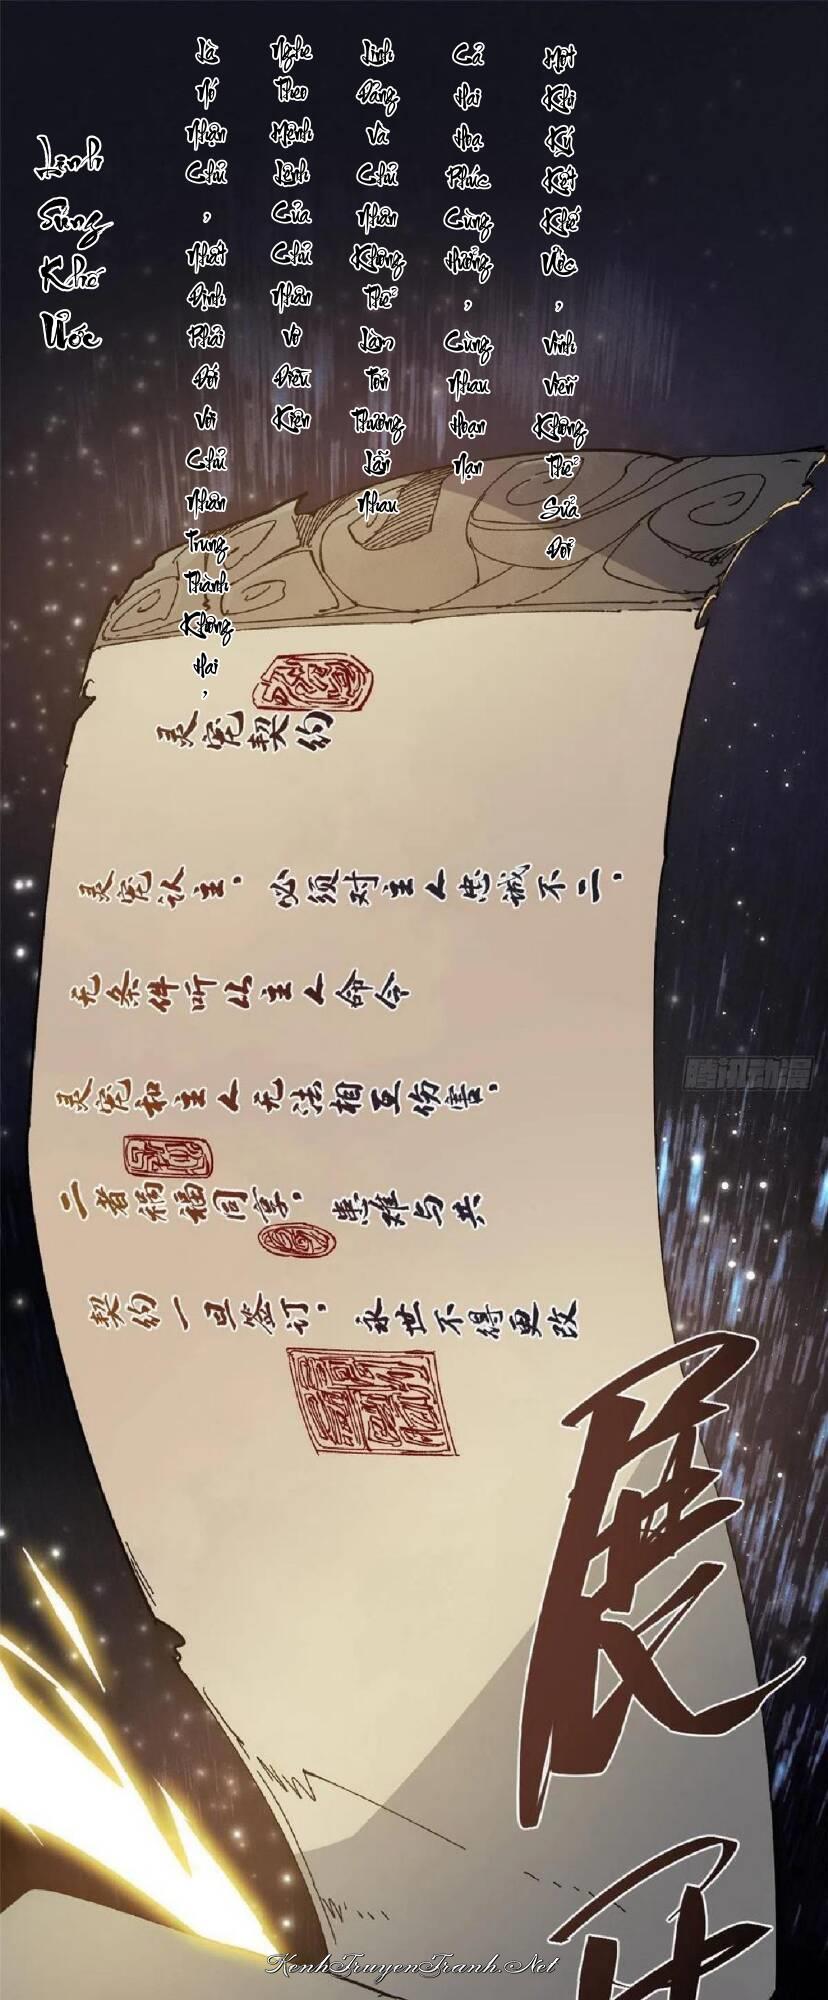 Linh Sủng Khế Ước
Là Nó Nhận Chủ, Nhất Định Phải Đối Với Chủ Nhân Trung Thành Không Hai,
Nghe Theo Mệnh Lệnh Của Chủ Nhân Vô Điều Kiện
Linh Đảng Và Chủ Nhân Không Thể Làm Tổn Thương Lẫn Nhau
Cả Hai Hoạ Phúc Cùng Hưởng, Cùng Nhau Hoạn Nạn
Một Khi Ký Kết Khế Ước, Vĩnh Viễn Không Thể Sửa Đổi
灵宠契约
灵宠认主，必须对主人忠诚不二，
无条件听从主人命令
灵宠和主人无法相互伤害，
二者祸福同享，患难与共
契约一旦签订，永世不得更改
腾讯动漫
展
KenhTruyenTranh.Net